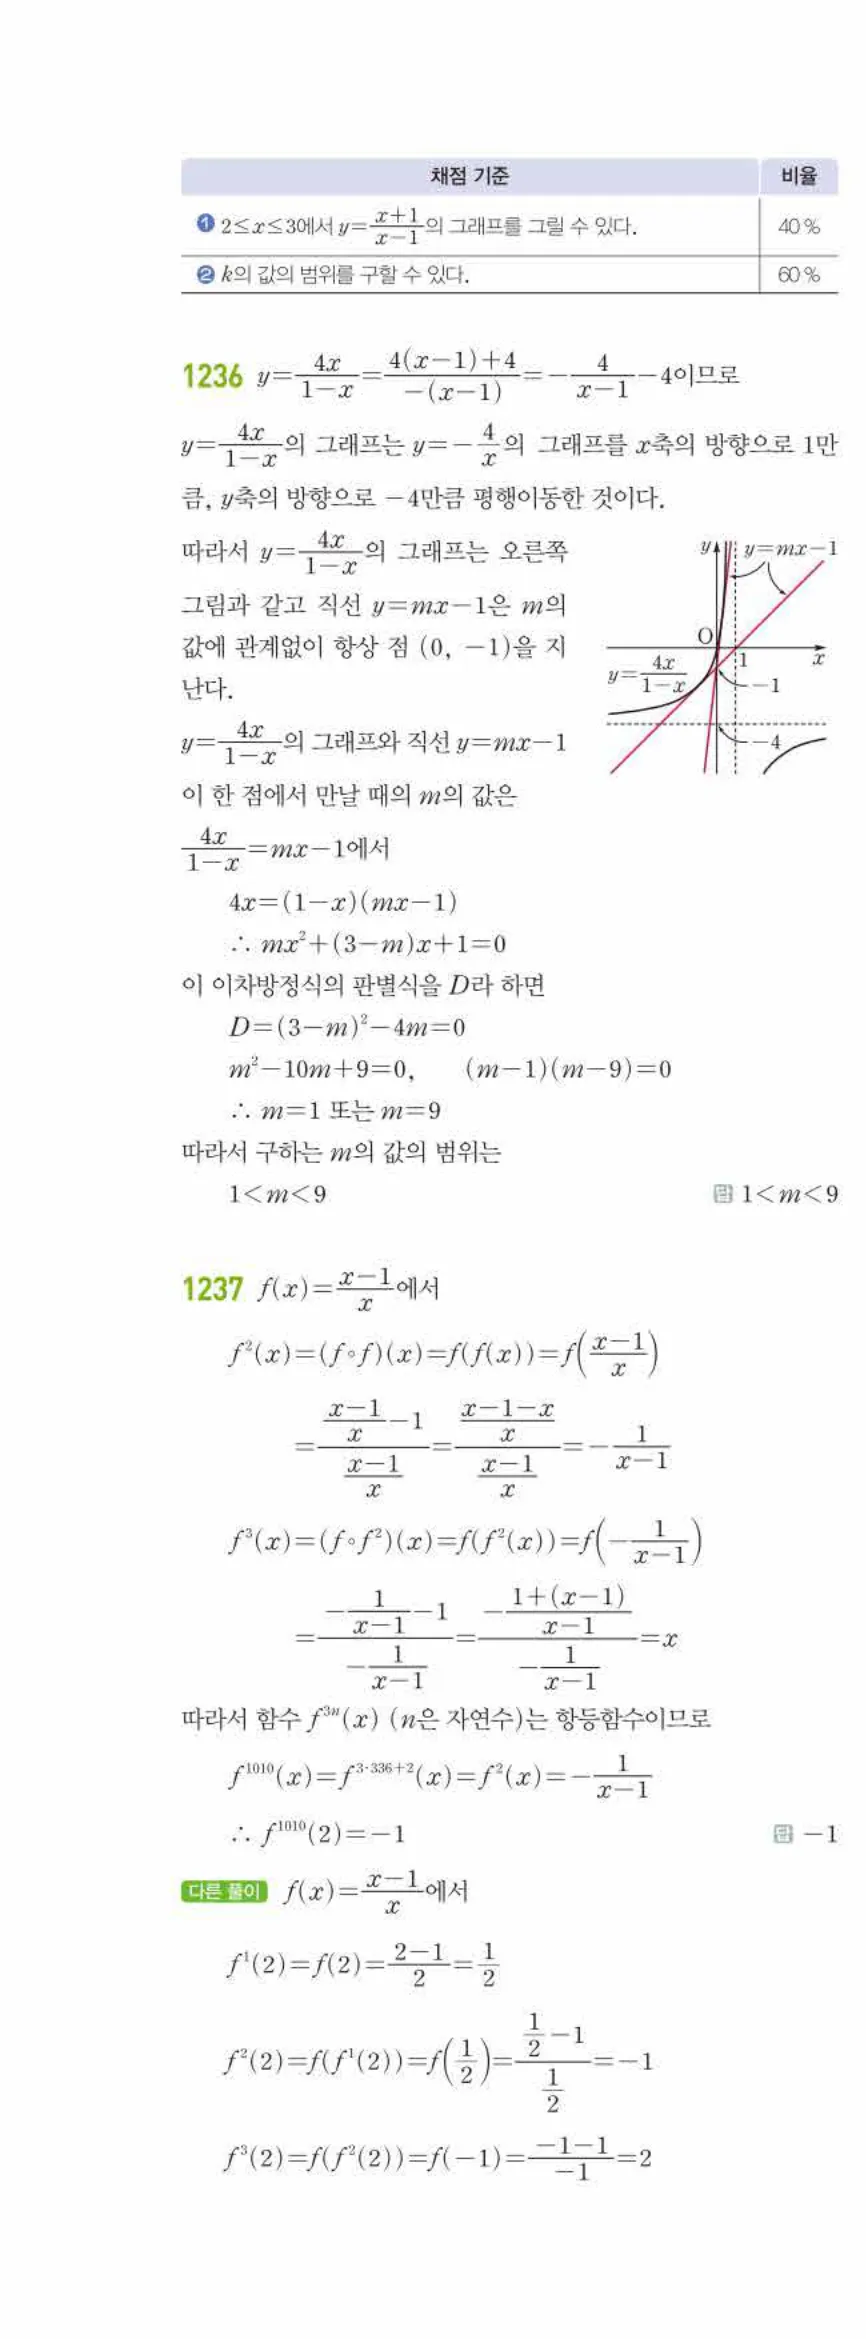 채점 기준 비율
❶ 2≤x≤3에서 y=\frac{x+1}{x-1}의 그래프를 그릴 수 있다. 40 %
❷ k의 값의 범위를 구할 수 있다. 60 %
1236 y=\frac{4x}{1-x}=\frac{4(x-1)+4}{-(x-1)}=-\frac{4}{x-1}-4이므로
y=\frac{4x}{1-x}의 그래프는 y=-\frac{4}{x}의 그래프를 x축의 방향으로 1만
큼, y축의 방향으로 -4만큼 평행이동한 것이다.
따라서 y=\frac{4x}{1-x}의 그래프는 오른쪽
그림과 같고 직선 y=mx-1은 m의
값에 관계없이 항상 점 (0, -1)을 지
난다.
y=\frac{4x}{1-x}의 그래프와 직선 y=mx-1
이 한 점에서 만날 때의 m의 값은
y y=mx-1
O 1 x
y=\frac{4x}{1-x} -1
-4
\frac{4x}{1-x}=mx-1에서
4x=(1-x)(mx-1)
∴ mx²+(3-m)x+1=0
이 이차방정식의 판별식을 D라 하면
D=(3-m)²-4m=0
m²-10m+9=0, (m-1)(m-9)=0
∴ m=1 또는 m=9
따라서 구하는 m의 값의 범위는
1<m<9 답 1<m<9
1237 f(x)=\frac{x-1}{x}에서
f²(x)=(f∘f)(x)=f(f(x))=f(\frac{x-1}{x})
=\frac{\frac{x-1}{x}-1}{\frac{x-1}{x}}=\frac{\frac{x-1-x}{x}}{\frac{x-1}{x}}=-\frac{1}{x-1}
f³(x)=(f∘f²)(x)=f(f²(x))=f(-\frac{1}{x-1})
=\frac{-\frac{1}{x-1}-1}{-\frac{1}{x-1}}=\frac{-\frac{1+(x-1)}{x-1}}{-\frac{1}{x-1}}=x
따라서 함수 f³ⁿ(x) (n은 자연수)는 항등함수이므로
f^{1010}(x)=f^{3·336+2}(x)=f²(x)=-\frac{1}{x-1}
∴ f^{1010}(2)=-1 답 -1
다른 풀이 f(x)=\frac{x-1}{x}에서
f¹(2)=f(2)=\frac{2-1}{2}=\frac{1}{2}
f²(2)=f(f¹(2))=f(\frac{1}{2})=\frac{\frac{1}{2}-1}{\frac{1}{2}}=-1
f³(2)=f(f²(2))=f(-1)=\frac{-1-1}{-1}=2